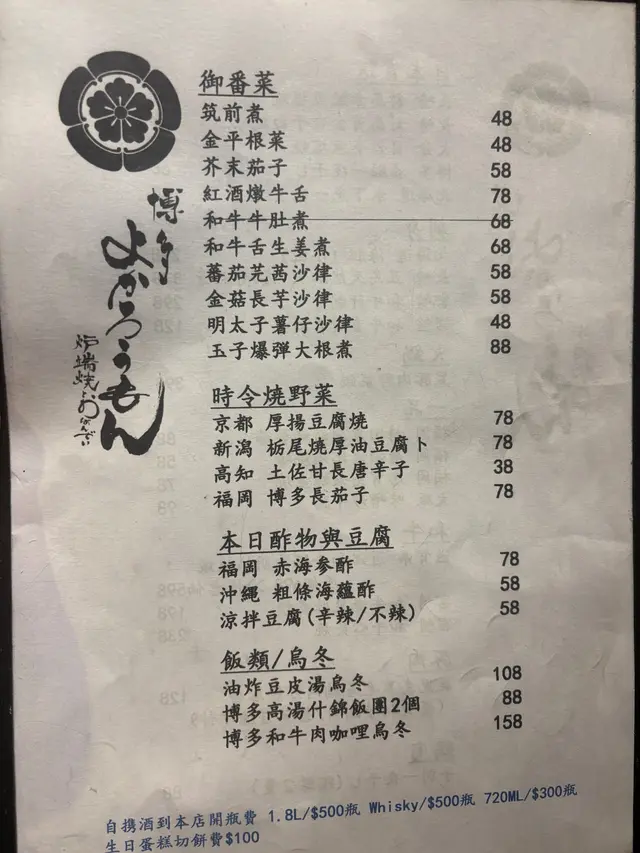 御番菜
筑前煮 48
金平根菜 48
芥末茄子 58
紅酒燉牛舌 78
和牛牛肚煮 68
和牛舌生姜煮 68
蕃茄芫茜沙律 58
金菇長芋沙律 58
明太子薯仔沙律 48
玉子爆弾大根煮 88
博多
よかろうもん
炉端焼とおばんざい
時令燒野菜
京都 厚揚豆腐燒 78
新潟 栃尾燒厚油豆腐ト 78
高知 土佐甘長唐辛子 38
福岡 博多長茄子 78
本日酢物與豆腐
福岡 赤海參酢 78
沖繩 粗條海蘊酢 58
涼拌豆腐(辛辣/不辣) 58
飯類/烏冬
油炸豆皮湯烏冬 108
博多高湯什錦飯團2個 88
博多和牛肉咖哩烏冬 158
自携酒到本店開瓶費 1.8L/$500瓶 Whisky/$500瓶 720ML/$300瓶
生日蛋糕切餅費$100